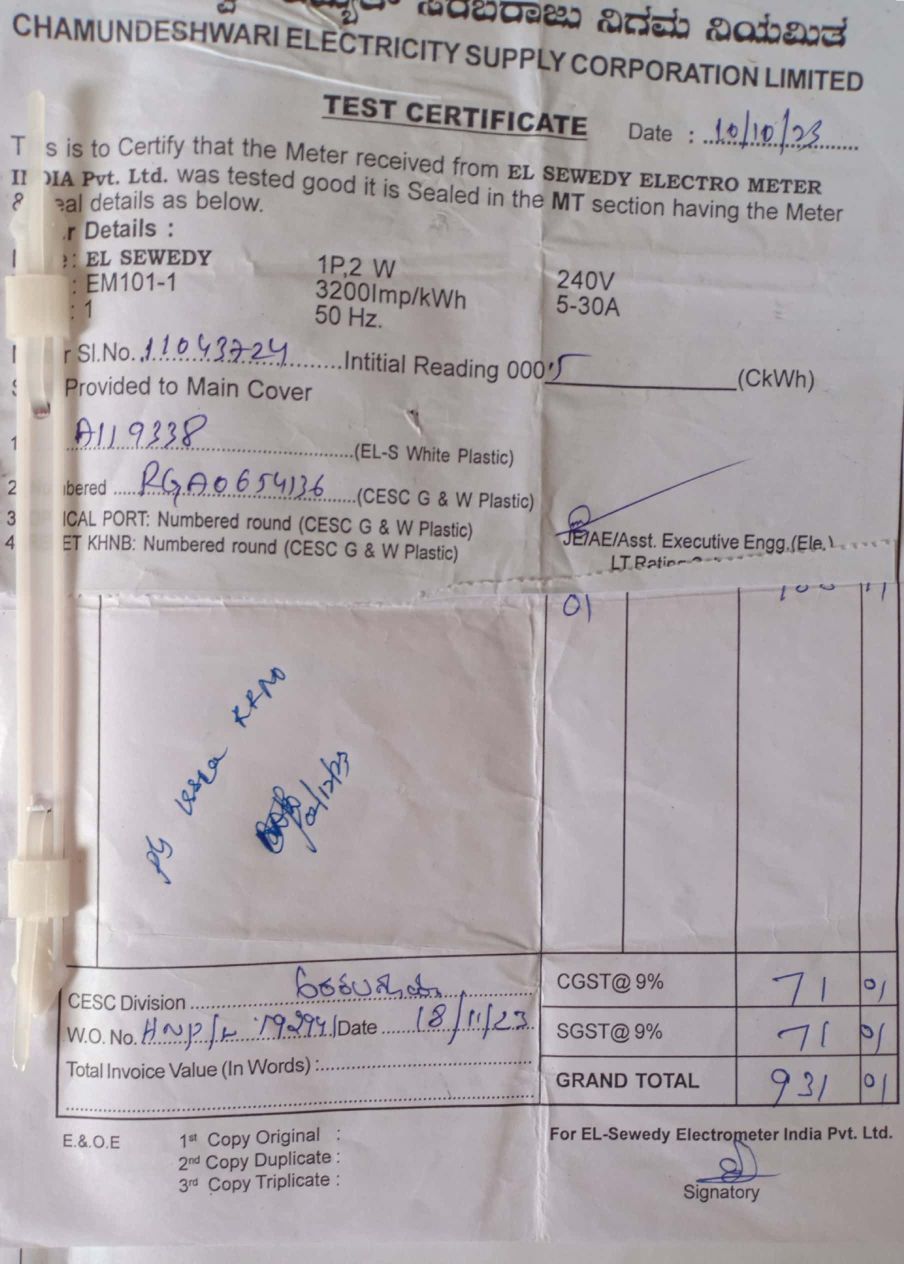 ಸರಬರಾಜು ನಿಗಮ ನಿಯಮಿತ
CHAMUNDESHWARI ELECTRICITY SUPPLY CORPORATION LIMITED
TEST CERTIFICATE
Date : 10/10/23
T s is to Certify that the Meter received from EL SEWEDY ELECTRO METER
DIA Pvt. Ltd. was tested good it is Sealed in the MT section having the Meter
& eal details as below.
r Details :
: EL SEWEDY 1P,2 W 240V
: EM101-1 3200Imp/kWh 5-30A
: 1 50 Hz.
r Sl.No. 11043724 Intitial Reading 000'5 (CkWh)
Provided to Main Cover
1 A119338 (EL-S White Plastic)
2 bered RGA0654136 (CESC G & W Plastic)
3 ICAL PORT: Numbered round (CESC G & W Plastic)
4 ET KHNB: Numbered round (CESC G & W Plastic)
JE/AE/Asst. Executive Engg.(Ele.)
LT Rating
01
02/12/23
CESC Division
CGST@ 9% 71 01
W.O. No. Date 18/11/23
SGST@ 9% 71 01
Total Invoice Value (In Words) :
GRAND TOTAL 931 01
E.&.O.E
1st Copy Original :
2nd Copy Duplicate :
3rd Copy Triplicate :
For EL-Sewedy Electrometer India Pvt. Ltd.
Signatory